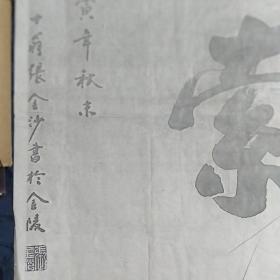 索
寅年秋末
十翁張金沙書於金陵